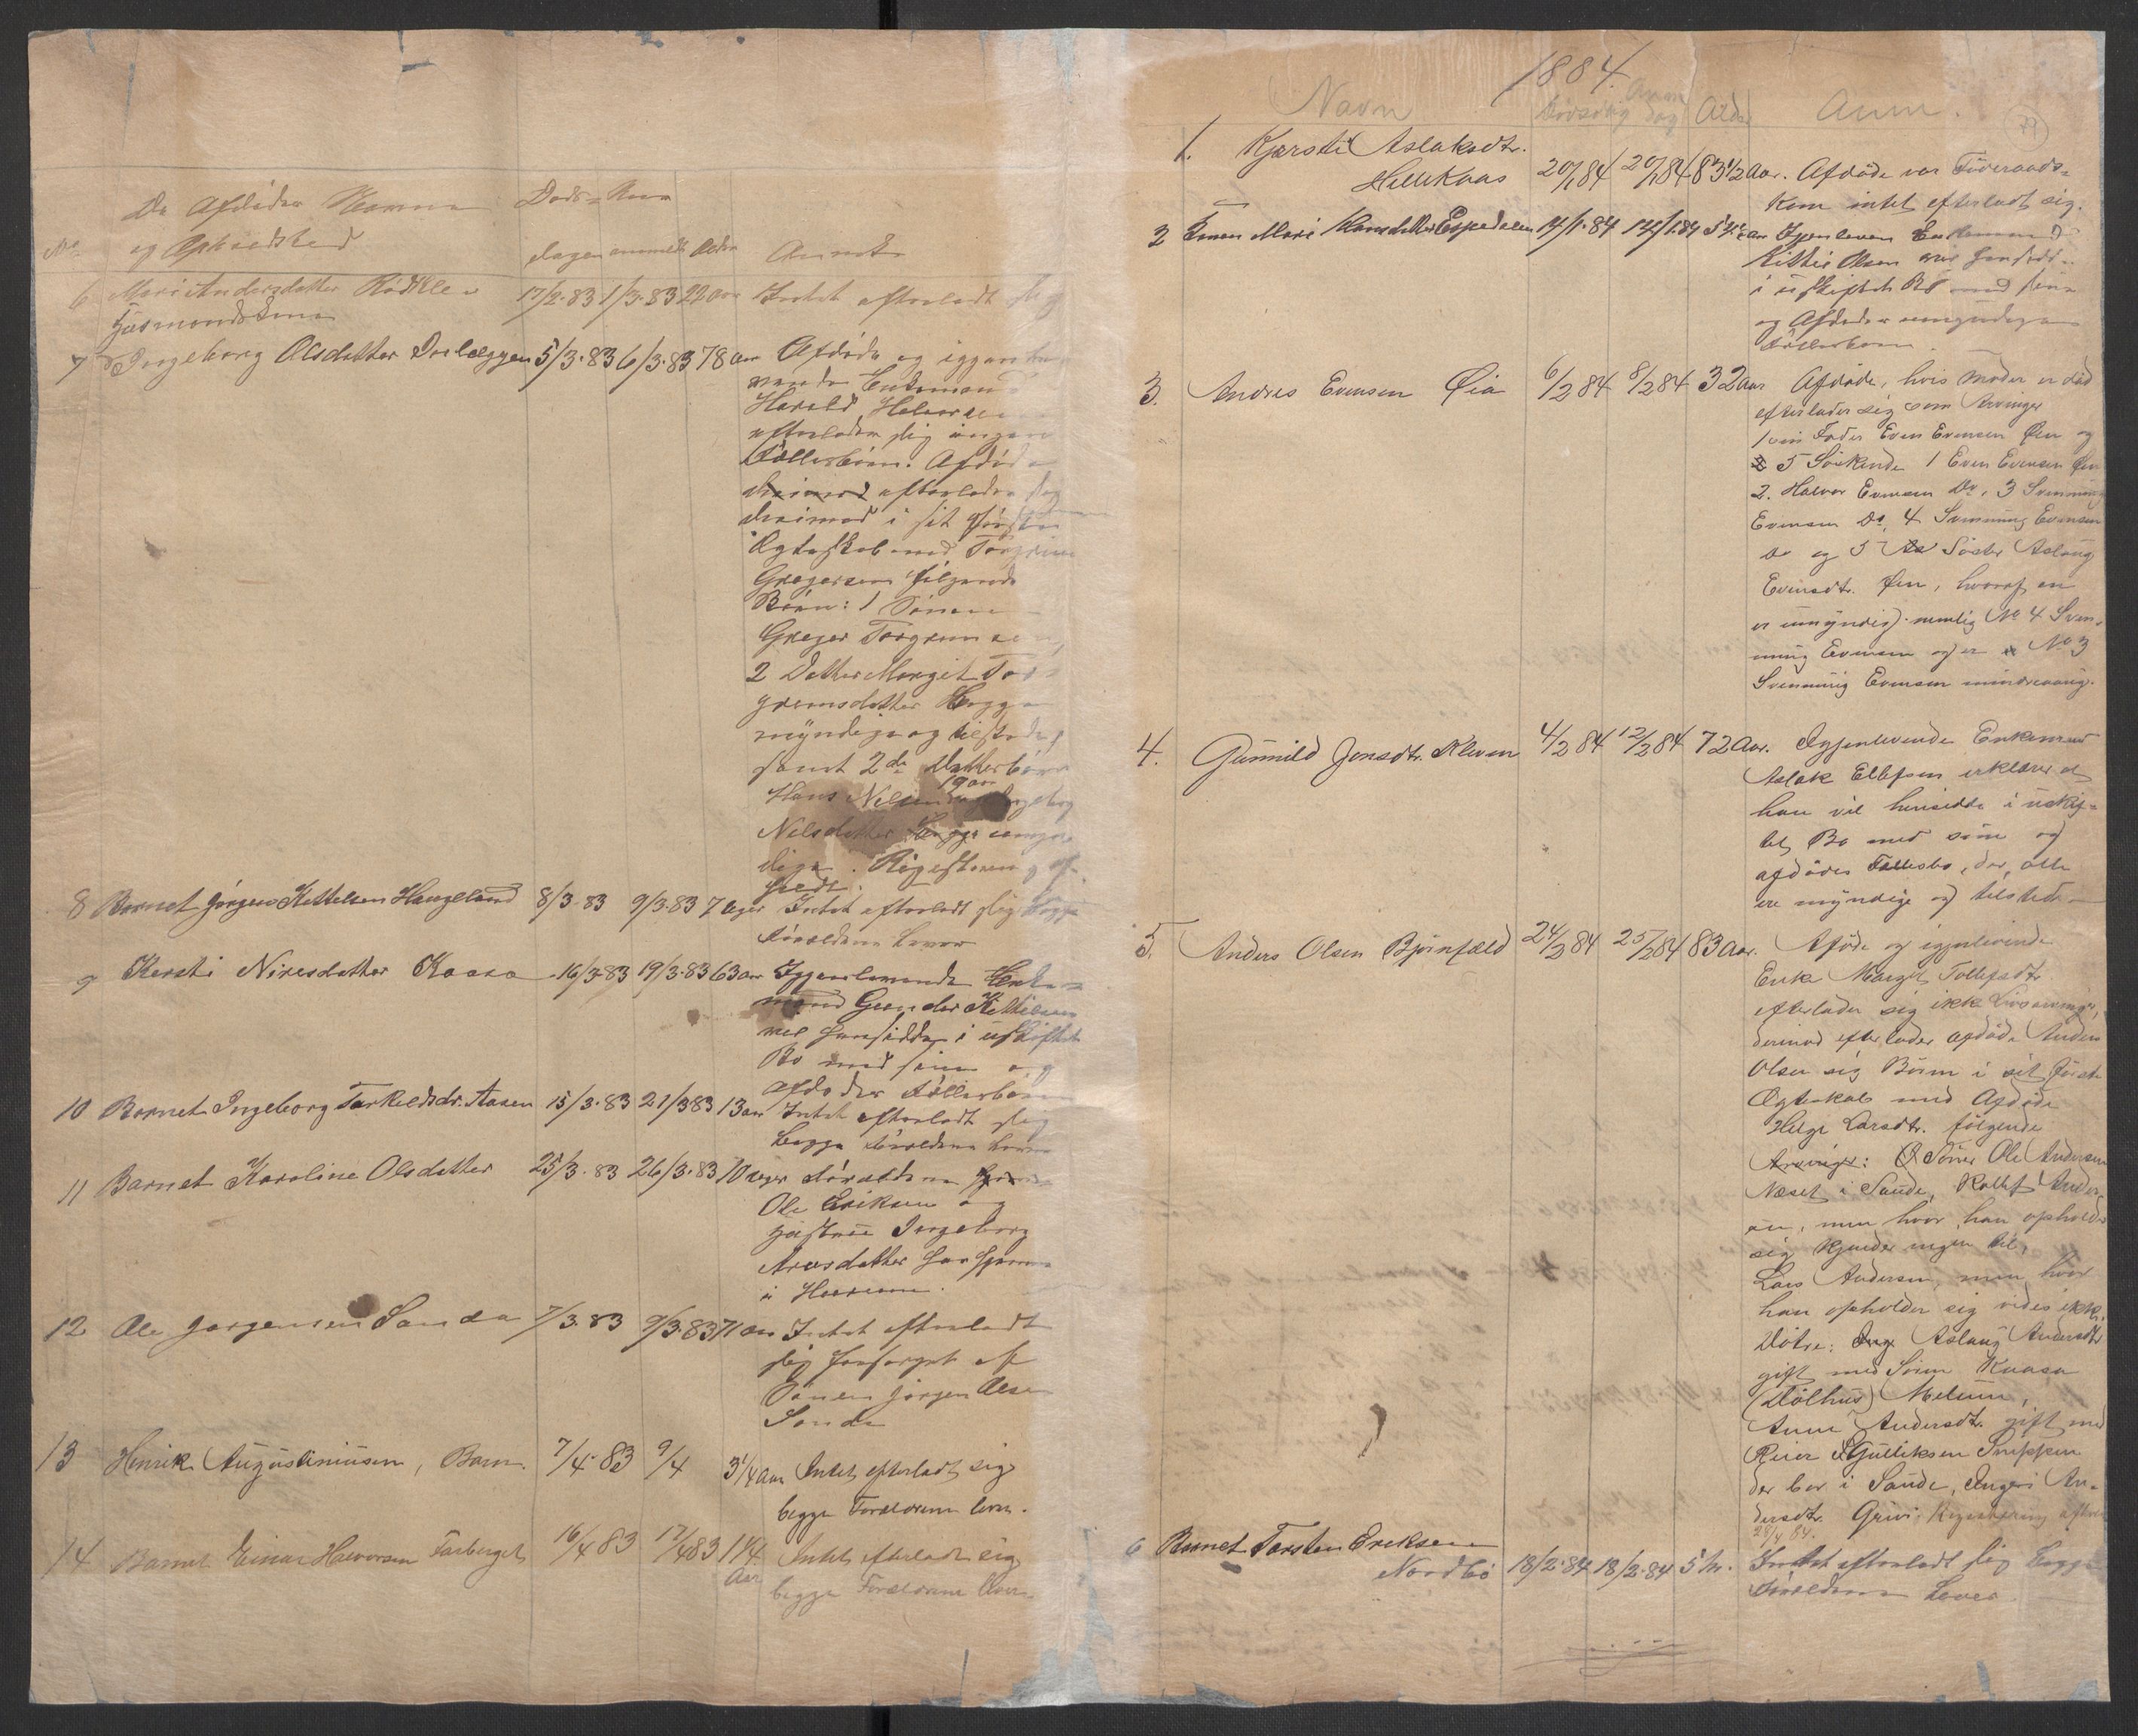 De Afdødes Navne Döds- Anm
No og Opholdsted dagen anmeldt Alder Anmk
6 Mari Andersdatter Rödkle 17/2.83 1/3.83 22 aar Intet efterladt sig
Huusmandskone
7 Ingeborg Olsdatter Indlæggen 5/3.83 6/3.83 78 aar Afdøde og igjenle-
vende Enkemand
Harald Halvorsen
efterlader sig ingen
Fællesbörn. Afdöde
derimod efterlader sig
derimod i sit förste
Ægteskab med Torgrim
Gregersen fölgende
Börn: 1 Sönen
Greger Torgrimsen
2 Datter Margit Tor-
grimsdatter Begge
myndige og tilstede
samt 2de Datterbörn
19 aar
Hans Nilsen Ingeborg
Nilsdatter Begge umyn-
dige. Registrering af-
holdt.
8 Barnet Jörgen Kittelsen Haugeland 8/3.83 9/3.83 7 Uger Intet efterladt sig begge
Forældrene Lever
9 Kersti Nirisdatter Kaasa 16/3.83 19/3.83 63 aar Igjenlevende Enke-
mand Gunder Kittilsen
vil hensidde i uskiftet
Bo med sine og
Afdödes Fællesbörn
10 Barnet Ingeborg Tarkeldsdr. Aasen 15/3.83 21/3.83 13 aar Intet efterladt sig
begge Forældrene Lever
11 Barnet Karoline Olsdatter 25/3.83 26/3.83 10 uger Forældrene
Ole Eriksen og
Hustrue Ingeborg
Aresdatter har hjemme
i
12 Ole Jørgensen Sanda 7/3.83 9/3.83 71 aar Intet efterladt
sig forsörget af
Sönen Jörgen Olsen
Sanda
13 Henrik Augustiniusen, Barn. 7/4.83 9/4 3 1/4 Aar Intet efterladt sig
begge Forældrene lever.
14 Barnet Einar Halvorsen Farberget 16/4 83 17/4 83 1 1/4 Aar Intet efterladt sig
begge Forældrene lever.
1884.
79
Navn Dødsdag Anm dag Alder Anm.
1. Kjersti Aslaksdtr.
Hellekaas 20/1 84 20/1 84 83 1/2 Aar. Afdøde var Føderaads-
kone intet efterladt sig.
2 Mari Hansdatter Espedalen 14/1.84 14/1.84 54 aar Igjenleven Enkemand
Kittil Olsen vil hensidde
i uskiftet Bo med sine
og Afdödes umyndige
Fællesbörn.
3. Andres Evensen Øia 6/2 84 8/2 84 32 Aar Afdøde, hvis Moder er död
efterlader sig som Arvinger
1 sin Fader Even Evensen Øen og
5 Söskende 1 Even Evensen Øen
2. Halvor Evensen Do, 3 Svenning
Evensen Do, 4 Svenning Evensen
Do og 5 Söster Aslaug
Evensdtr. Øen, hvoraf en
er umyndig. nemlig No 4 Sven-
ning Evensen og er No 3
Svenning Evensen mindreaarig.
4. Gunnild Jensdtr. Kleven 4/2 84 12/2 84 72 Aar. Igjenlevende Enkemand
Aslak Ellefsen erklærer at
han vil hensidde i uskif-
tet Bo med sine og
afdödes Fællesbö, der, alle
ere myndige og tilstede
5. Anders Olsen Bjørnfæld 24/2 84 25/2 84 83 Aar. Aføde og igjenlevende
Enke Margit Tollefsdtr
efterlader sig ikke Livsarving,
derimod efterlader afdøde Anders
Olsen sig Börn i sit förste
Ægteskab med Afdöde
Helge Larsdtr. følgende
Arvinger: Sönner Ole Andersen
Næset i Saude, Rollef Ander-
sen, men hvor han opholder
sig kjender ingen til,
Lars Andersen, men hvor
han opholder sig vides ikke,
Døtre: Aslaug Andersdtr
gift med Sören Kaasa
(Dölhus) Melum,
Anne Andersdtr. gift med
Reier Gulliksen Snippen
der bor i Saude, Ingeri An-
dersdtr. Grivi. Registrering afhol
28/4 84.
6 Barnet Tarsten Eriksen
Nordbö 18/2.84 18/2.84 5 M. Intet efterladt sig Begge
Forældrene Lever